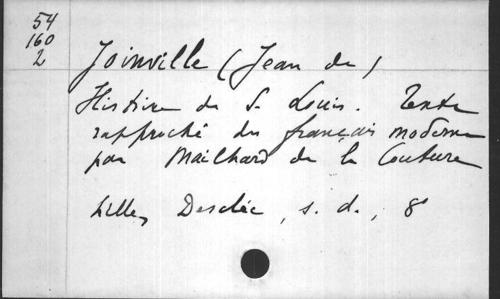 54
160
2
Joinville (Jean de)
Histoire de S. Louis. Texte
rapproché du français moderne
par Mailhard de la Couture
Lille, Desclée, s. d., 8°